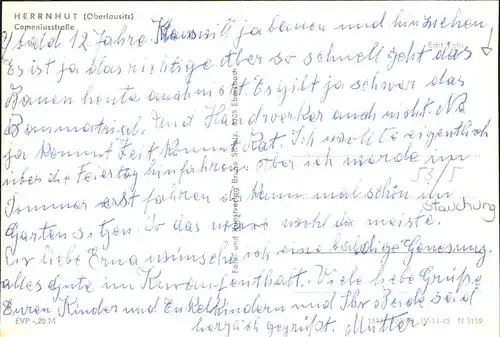 HERRNHUT (Oberlausitz)
Comeniusstraße
Echt Foto
bald 12 Jahre. will ja bauen und hinziehen
Es ist ja das richtige aber so schnell geht das
Bauen heute auch nicht. Es gilt ja schwer das
Baumatrial. Und Handwerker auch nicht. Na
ja kommt Zeit, kommt Rat. Ich wollte eigentlich
über die Feiertag hinfahren. aber ich werde im
Sommer erst fahren da kann mal schön im
Garten sitzen. So das wäre wohl das meiste.
Dir liebe Erna wünsche ich eine baldige Genesung
alles Gute im Kuraufenthalt. Viele liebe Grüße
Euren Kinder und Enkelkindern und Ihr Beide seid
herzlich gegrüßt. Mutter
53/5
Stauchung
Foto- und Verlag Bruno Eberbach
EVP -,20 M
IV-14-45 N 5159